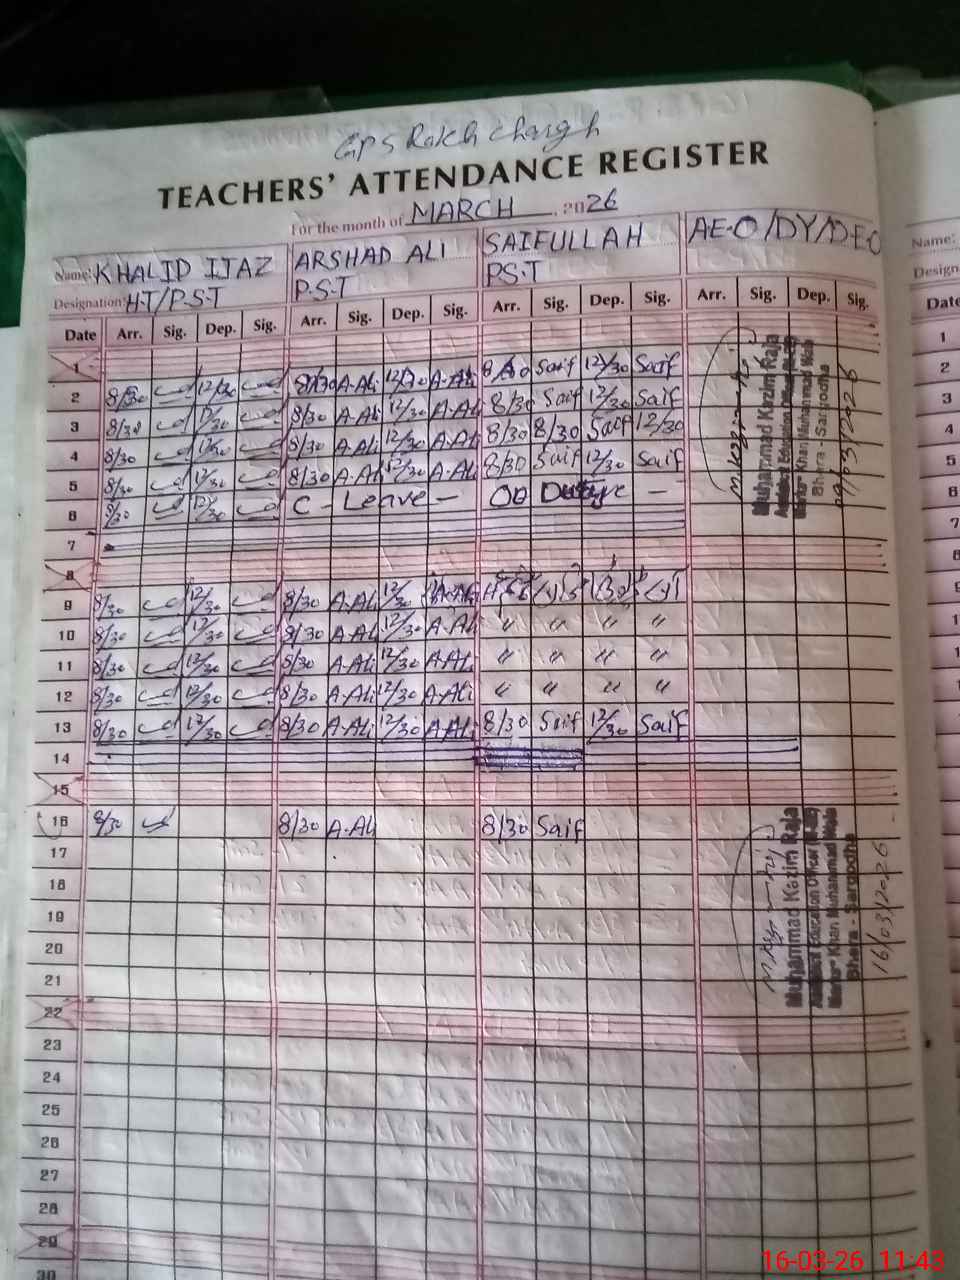 GPS Rakh Charagh
TEACHERS' ATTENDANCE REGISTER
For the month of MARCH 2026
Name: KHALID IJAZ ARSHAD ALI SAIFULLAH AE-O/DY/D-E-O
Designation: H-T/P.S.T P.S.T PS.T
Date Arr. Sig. Dep. Sig. Arr. Sig. Dep. Sig. Arr. Sig. Dep. Sig. Arr. Sig. Dep. Sig.
1
2 8/30 12/30 8/30 A-Ali 12/30 A-Ali 8/30 Saif 12/30 Saif
3 8/30 12/30 8/30 A-Ali 12/30 A-Ali 8/30 Saif 12/30 Saif
4 8/30 12/30 8/30 A-Ali 12/30 A-Ali 8/30 8/30 Saif 12/30
5 8/30 12/30 8/30 A-Ali 12/30 A-Ali 8/30 Saif 12/30 Saif
6 8/30 12/30 C - Leave - On —
7
8
9 8/30 12/30 8/30 A-Ali 12/30 A-Ali
10 8/30 12/30 8/30 A-Ali 12/30 A-Ali " " " "
11 8/30 12/30 8/30 A-Ali 12/30 A-Ali " " " "
12 8/30 12/30 8/30 A-Ali 12/30 A-Ali " " " "
13 8/30 12/30 8/30 A-Ali 12/30 A-Ali 8/30 Saif 12/30 Saif
14
15
16 8/30 8/30 A-Ali 8/30 Saif
17
18
19
20
21
22
23
24
25
26
27
28
29
30
Muhammad Kazim Raja
Assistant Education Officer
Markaz Khan Muhammad Wala
Bhera - Sargodha
Muhammad Kazim Raja
Assistant Education Officer
Markaz Khan Muhammad Wala
Bhera - Sargodha
16/03/2026
Name:
Design
Date
1
2
3
4
5
6
7
8
9
16-03-26 11:43